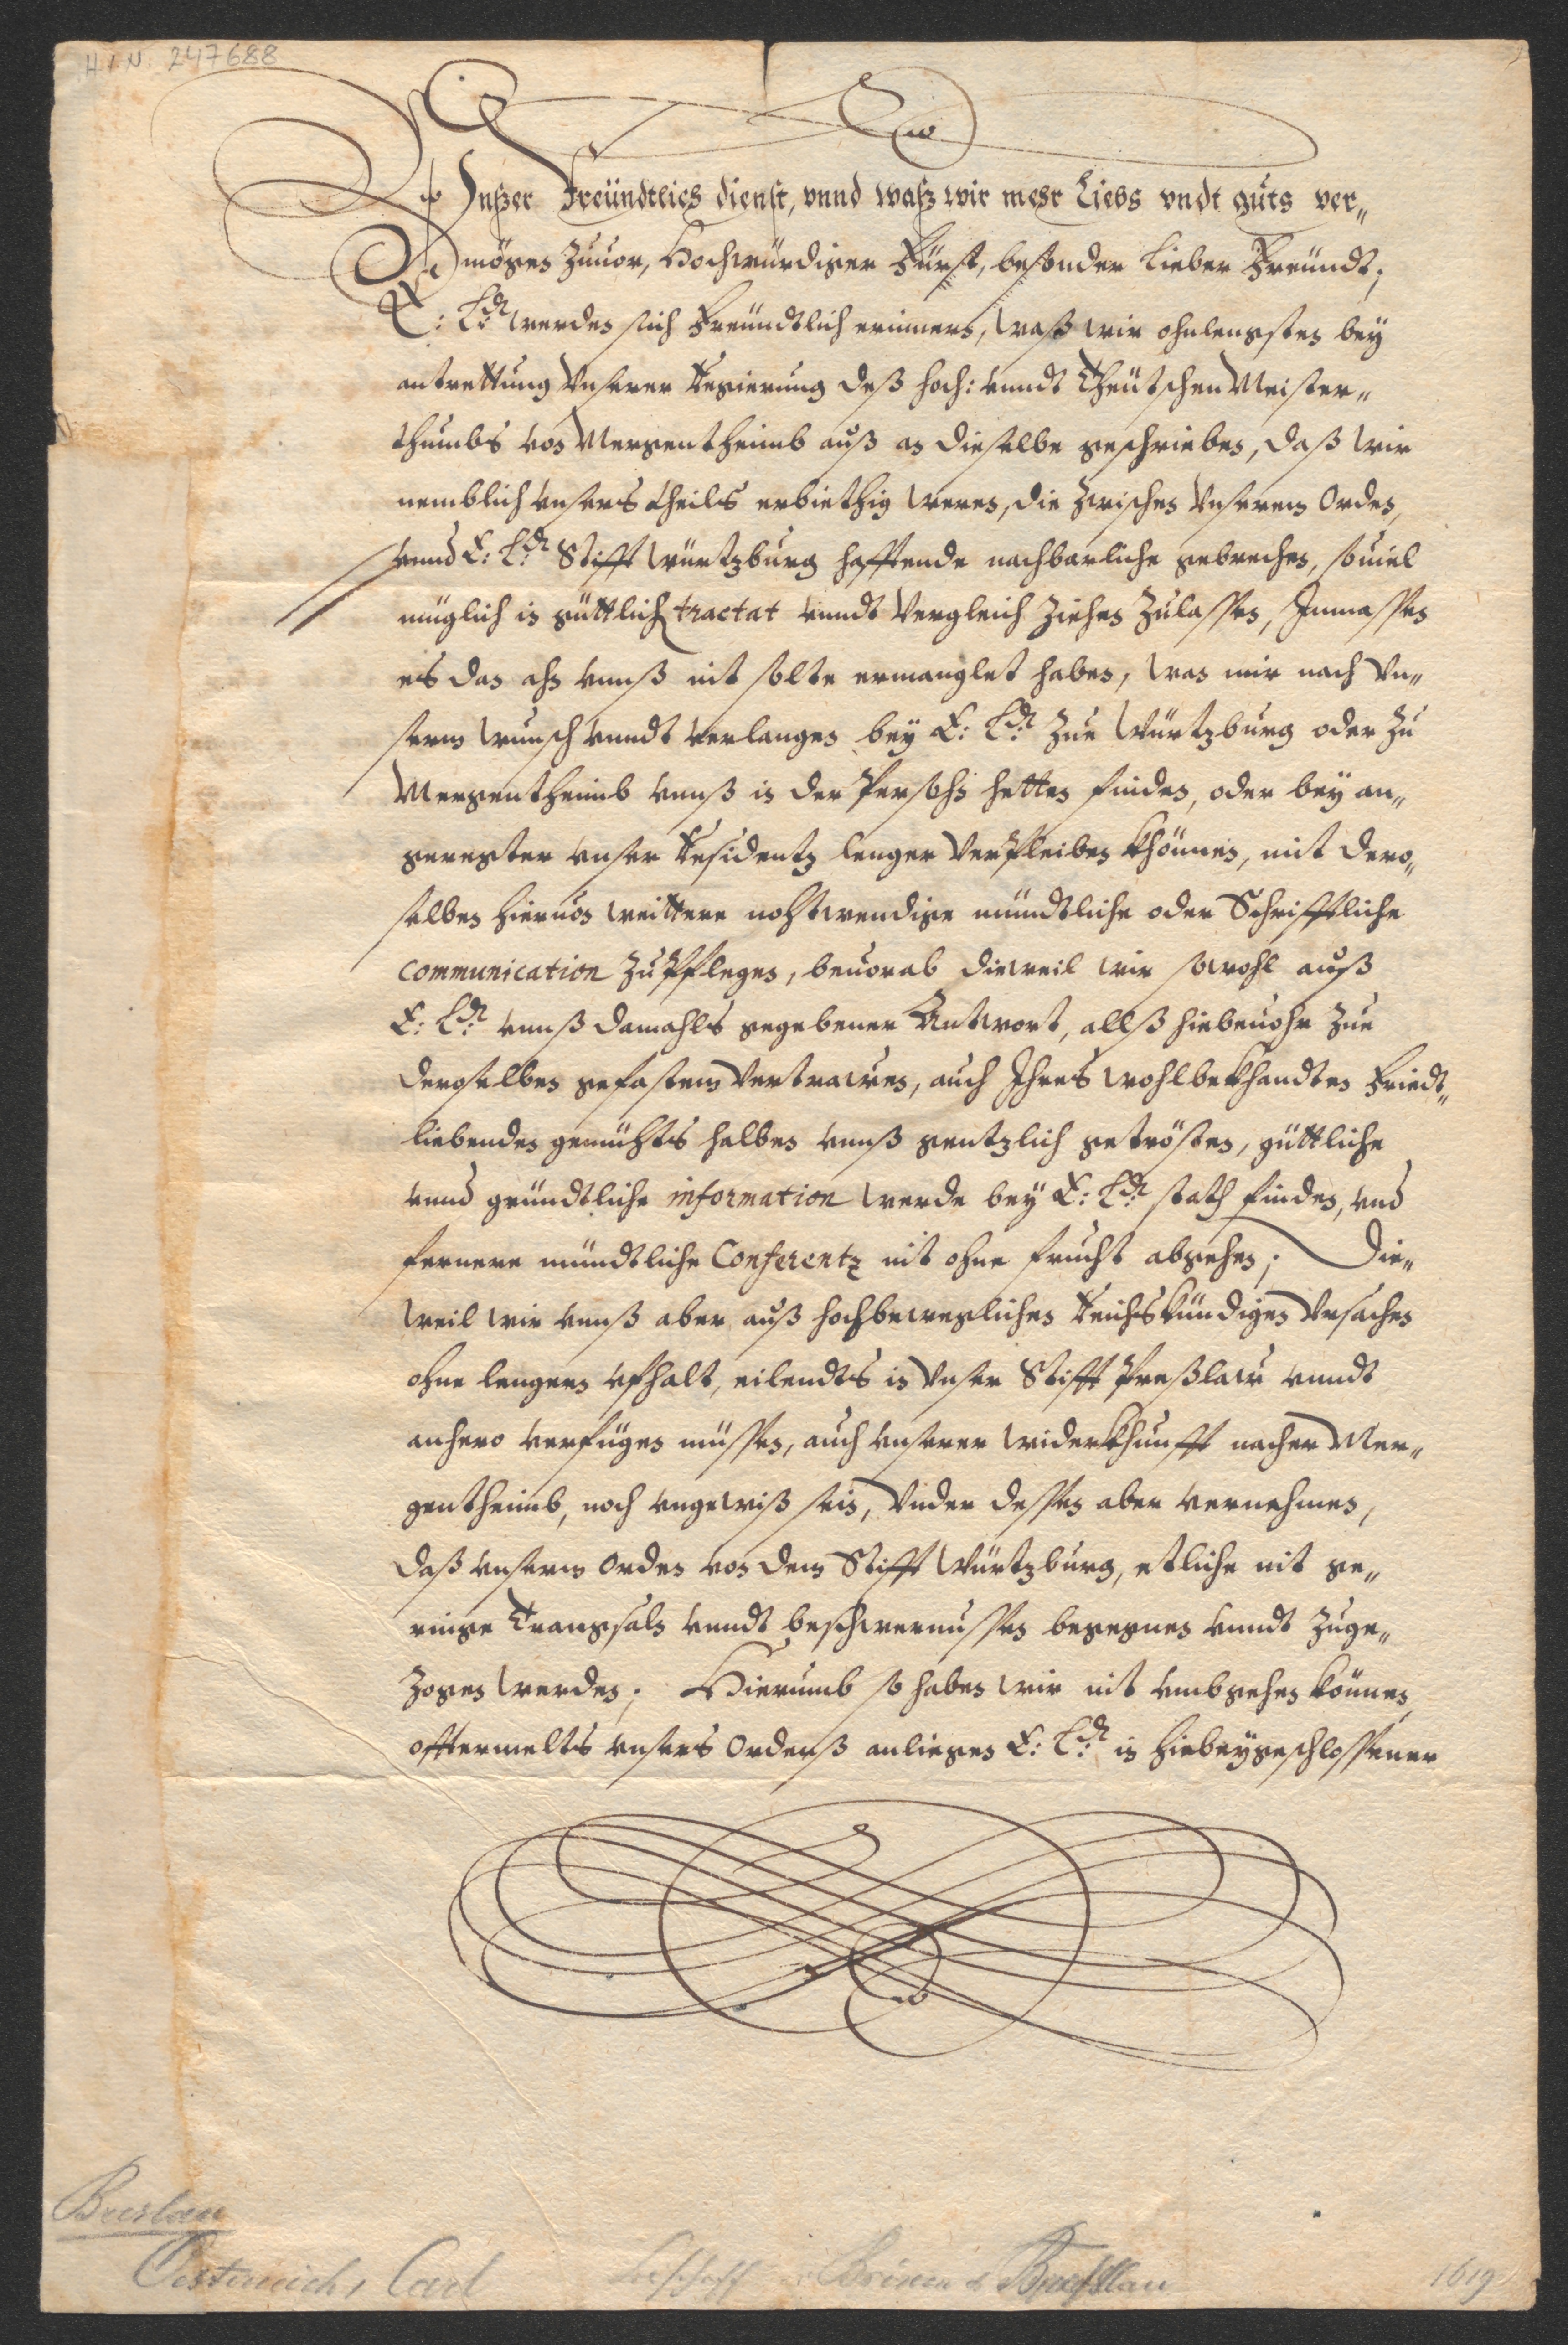 H / N 247688
Vnßer Freündtlich dienst, vnnd waß wir mehr Liebs vndt guts ver„
mögen zuuor, Hochwürdiger Fürst, besonder Lieber Freündt;
E: Ld: werden sich Freündtlich erinnern, waß wir ohnlengsten bey
antrettung Vnserer Regierung deß hoch: vnndt Theütschen Meister„
thumbs von Mergentheimb auß an dieselbe geschrieben, daß wir
nemblich vnsers theils erbiethig weren, die zwischen Vnserem Orden,
vnnd E: Ld: Stifft Würtzburg hafftende nachbarliche gebrechen, souiel
müglich in güttlich tractat vnndt Vergleich ziehen zulassen, Inmassen
es dan ahn vnnß nit solte ermanglet haben, wan wir nach Vn„
serm wunsch vnndt verlangen bey E: Ld: zue Würtzburg oder zu
Mergentheimb vnnß in der Persohn hetten finden, oder bey an„
geregter vnser Residentz lenger Verpleiben khönnen, mit dero„
selben hieruon weittere nohtwendige mündtliche oder Schrifftliche
communication zupflegen, beuorab dieweil wir sowohl auß
E: Ld: vnnß damahls gegebener Antwort, allß hiebeuohr zue
deroselben gefastem Vertrawen, auch Ihres wohlbekhandten Friedt„
liebenden gemühts halben vnnß gentzlich getrösten, güttliche
vnnd gründtliche information werde bey E: Ld: stath finden, vnd
fernere mündtliche Conferentz nit ohne frucht abgehen; Die„
weil wir vnnß aber auß hochbeweglichen Reichskündigen Vrsachen
ohne lengern vfhalt, eilendts in Vnser Stifft Preßlaw vnndt
anhero verfügen müssen, auch vnserer widerkhunfft nacher Mer„
gentheimb, noch vngewiß sein, Vnder dessen aber vernehmen,
daß vnserm Orden von dem Stifft Würtzburg, etliche nit ge„
ringe Trangsaln vnndt beschwernussen begegnen vnndt zuge„
zogen werden; Hierumb so haben wir nit vmbgehen können,
offtermelts vnsers Ordenß anliegen E: Ld: in hiebeygeschlossener
Breslau
Oesterreich, Carl
Bischoff v. Brixen & Breslau
1619